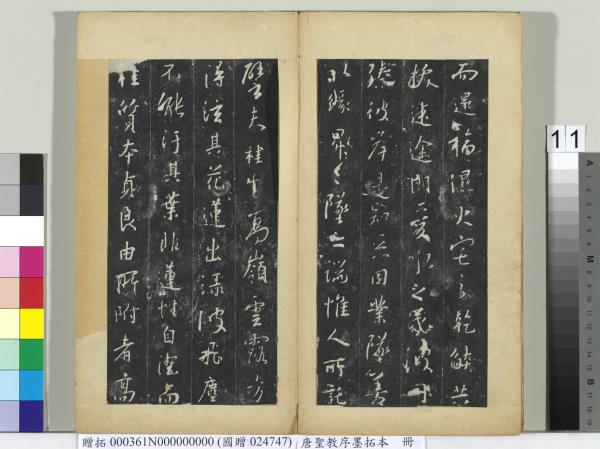 而還福濕火宅之乾焰共
拔迷途朗愛水之昏波同
臻彼岸是知惡因業墜善
以緣昇々墜之端惟人所託
譬夫桂生高嶺雲露方
得泫其花蓮出淥波飛塵
不能汙其葉非蓮性自潔而
桂質本貞良由所附者高
11
A 1 2 3 4 5 6 M 8 9 10 11 12 13 14 15 B 17 18 19
贈拓 000361N000000000 (國贈 024747) 唐聖教序墨拓本 冊